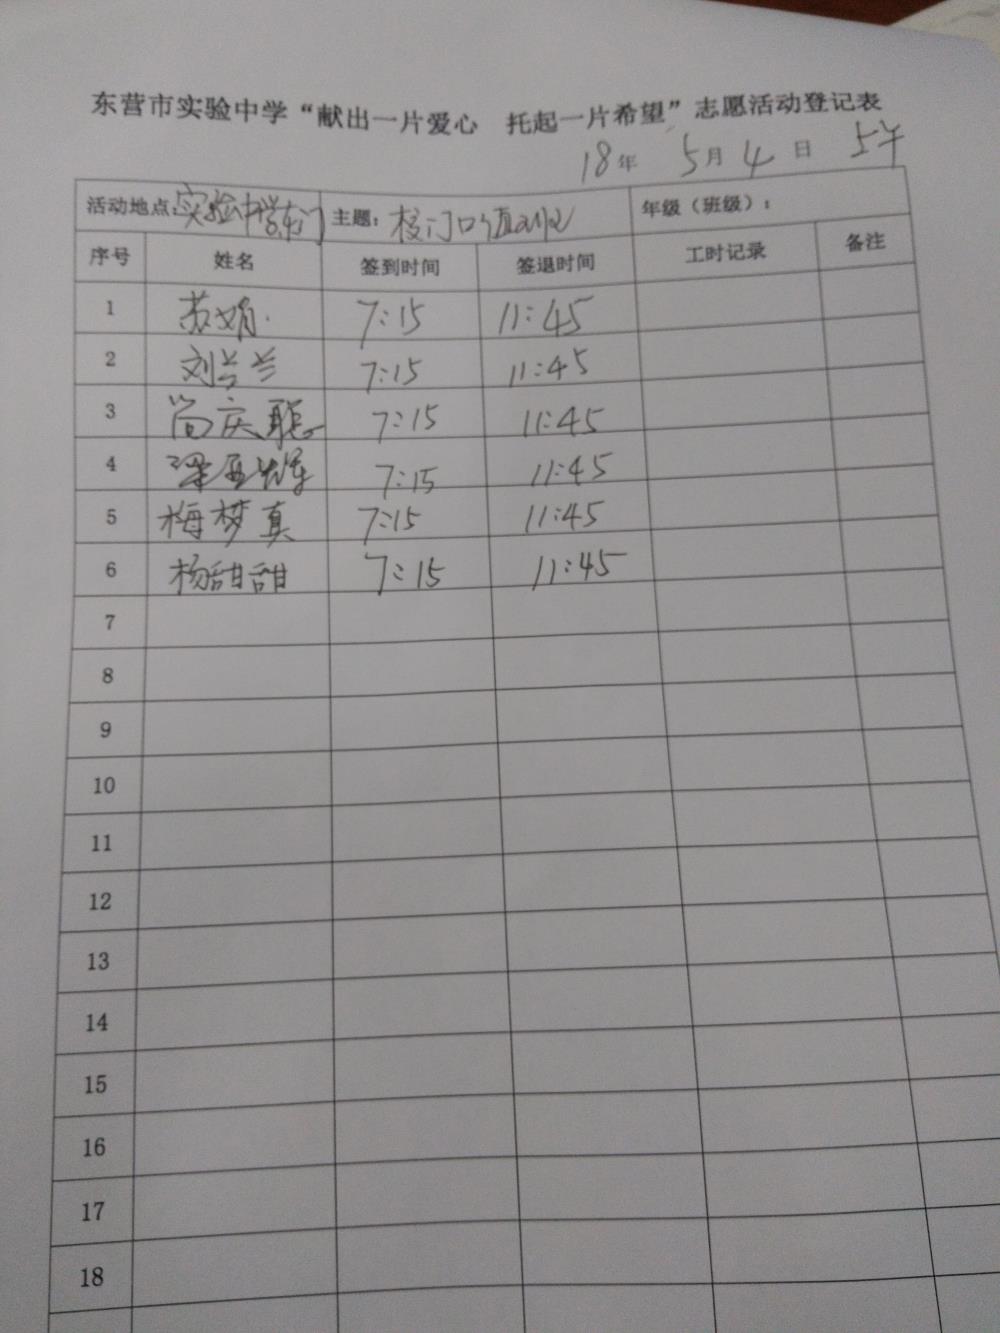 东营市实验中学“献出一片爱心 托起一片希望”志愿活动登记表
18年 5月4日 上午
活动地点:实验中学东门 主题:校门口值班 年级（班级）:
序号 姓名 签到时间 签退时间 工时记录 备注
1 苏娟 7:15 11:45
2 刘兰兰 7:15 11:45
3 尚庆聪 7:15 11:45
4 梁 7:15 11:45
5 梅梦真 7:15 11:45
6 杨甜甜 7:15 11:45
7
8
9
10
11
12
13
14
15
16
17
18